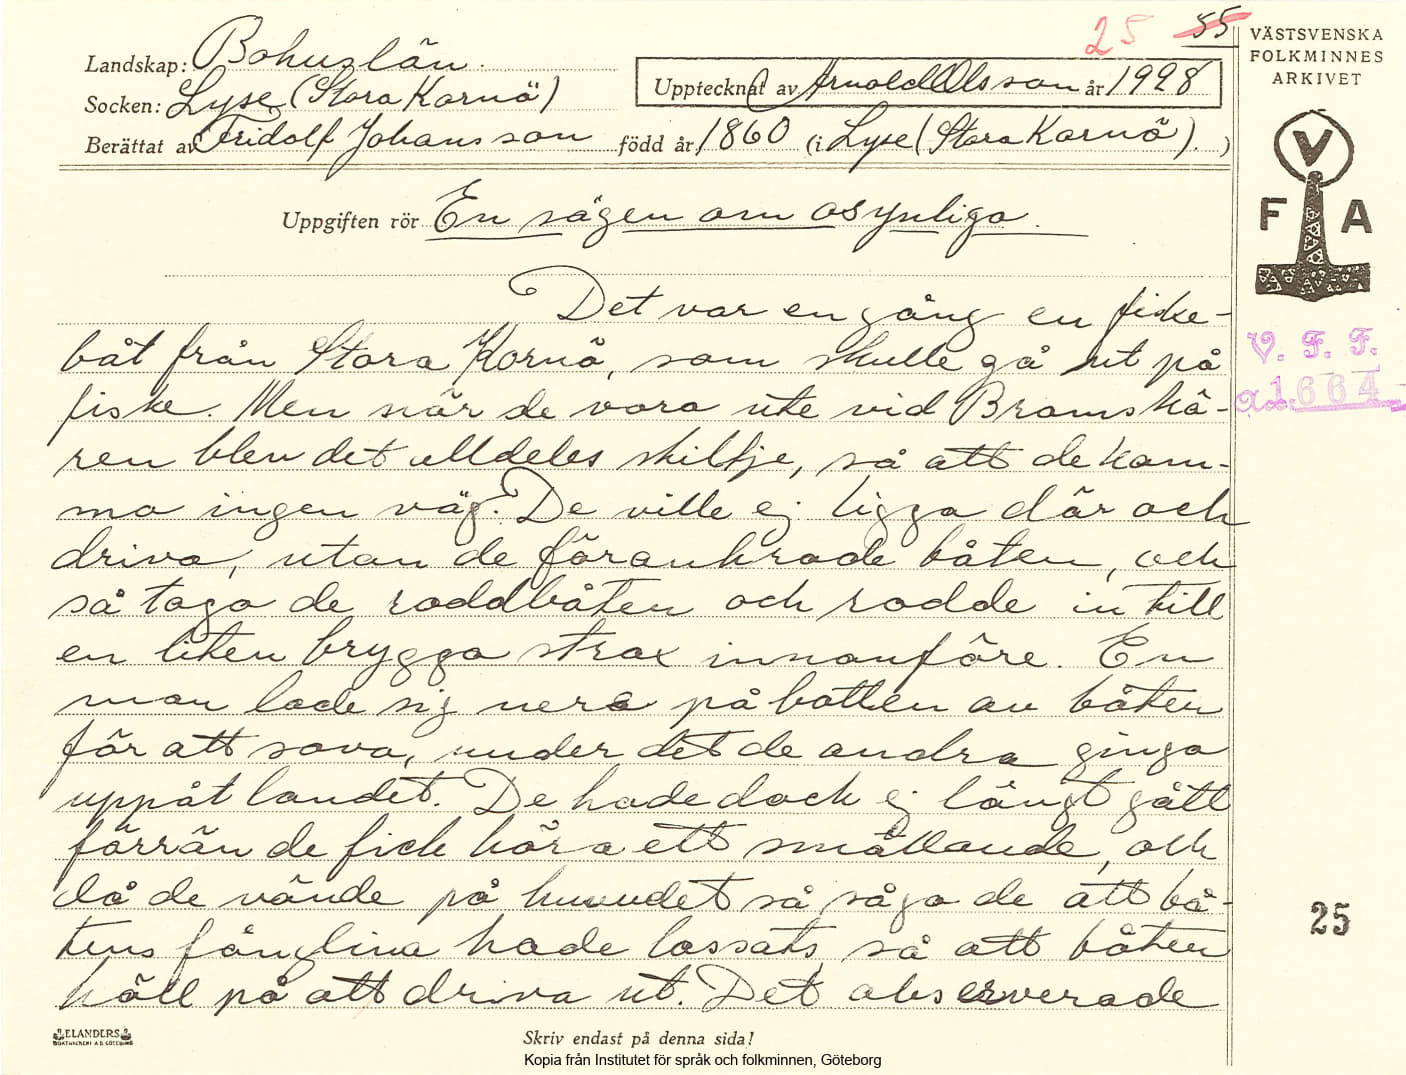 25 55
VÄSTSVENSKA
FOLKMINNES
ARKIVET
Landskap: Bohuslän.
Socken: Lyse (Stora Kornö)
Upptecknat av Arnold Olsson år 1928
Berättat av Fridolf Johansson född år 1860 (i Lyse (Stora Kornö). )
V
F A
Uppgiften rör En sägen om osynliga.
Det var en gång en fiske-
båt från Stora Kornö, som skulle gå ut på
fiske. Men när de voro ute vid Bramskä-
ren blev det alldeles stiltje, så att de kom-
mo ingen väg. De ville ej ligga där och
driva, utan de förankrade båten, och
så togo de roddbåten och rodde in till
en liten brygga strax innanföre. En
man lade sig nere på botten av båten
för att sova, under det de andra gingo
uppåt landet. De hade dock ej långt gått
förrän de fick höra ett smällande, och
då de vände på huvudet så sågo de att bå-
tens fånglina hade lossats, så att båten
höll på att driva ut. Det observerade
V. F. F.
1664
25
ELANDERS
BOKTRYCKERI A.B. GÖTEBORG
Skriv endast på denna sida!
Kopia från Institutet för språk och folkminnen, Göteborg